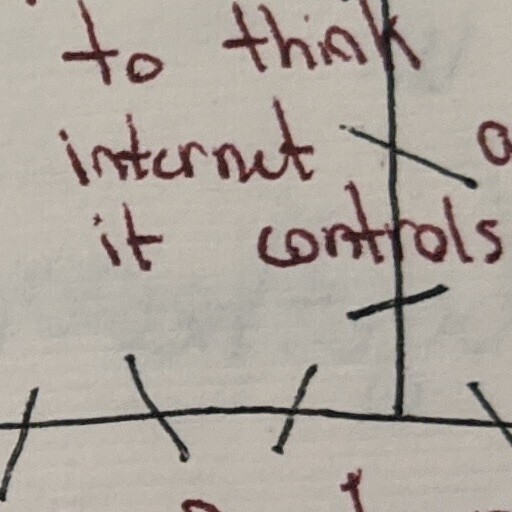 to think
internet
it controls